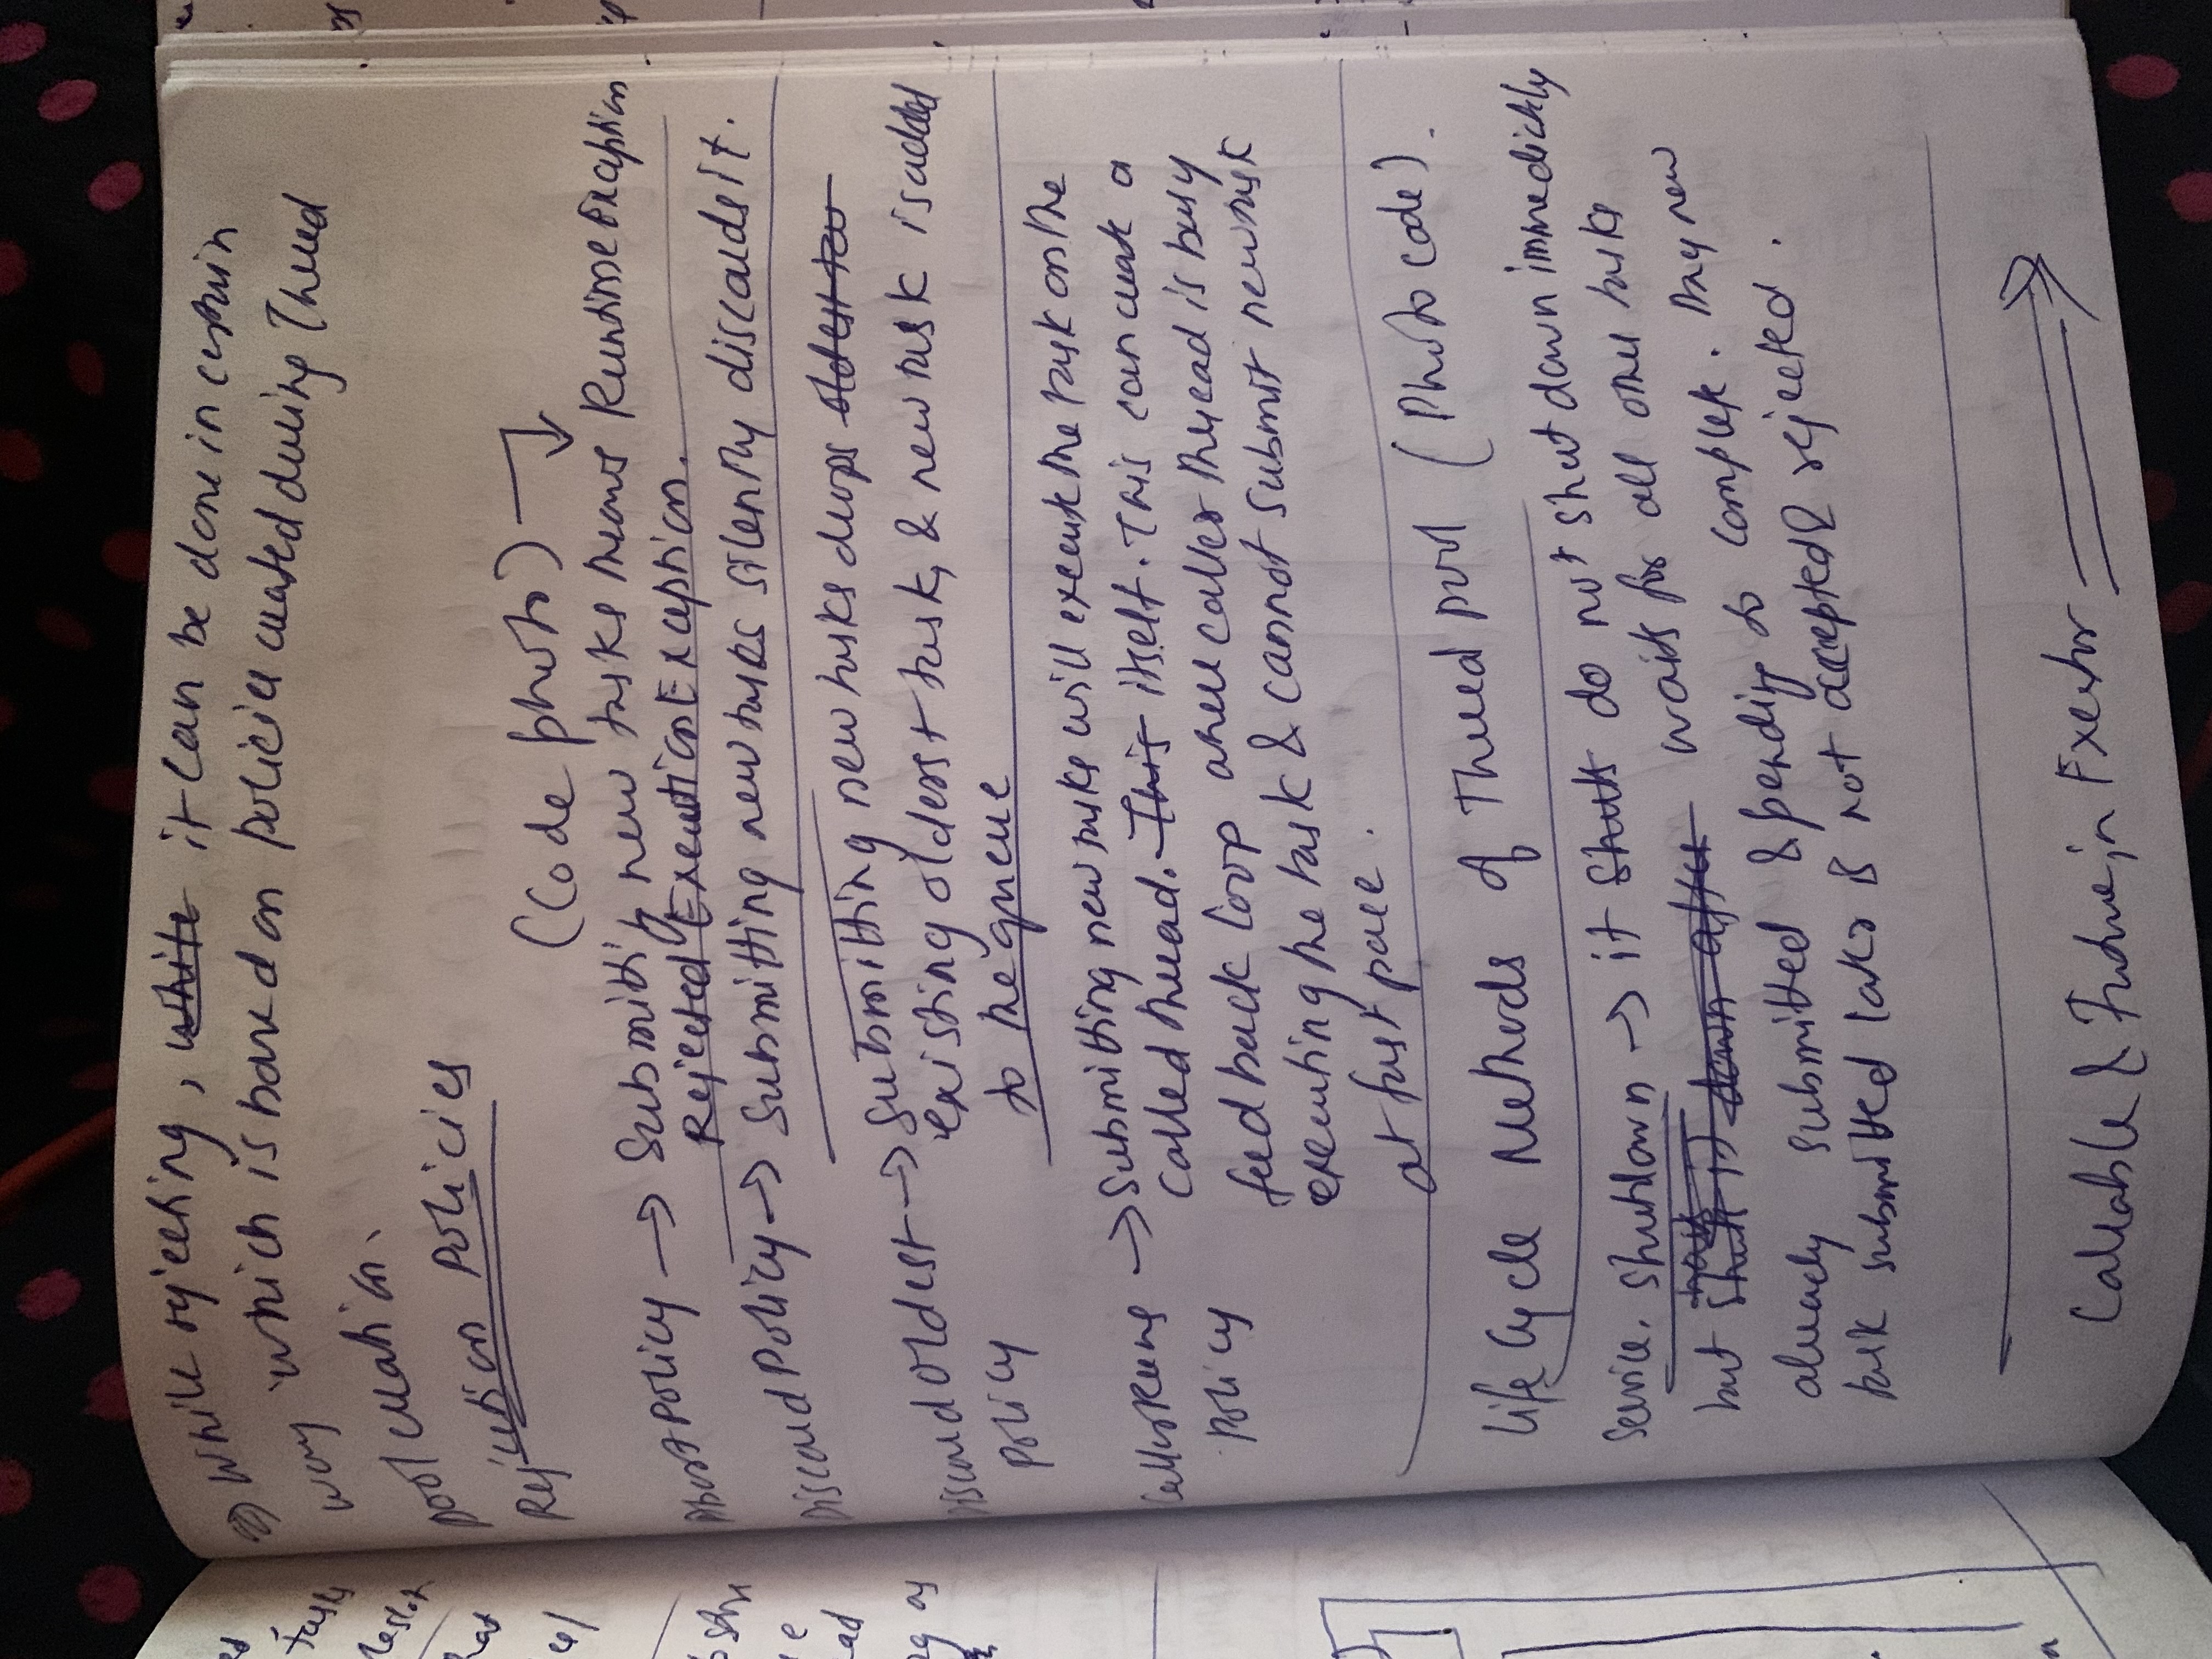 ⇒ While rejecting, it can be done in certain
way which is based on policies created during Thread
pool creation.
Rejection Policies
(Code photo)
Abort Policy → Submitting new tasks throws Runtime Exception
Rejected Execution Exception.
Discard Policy → Submitting new tasks silently discards it.
Discard Oldest → Submitting new tasks drops oldest
existing olderst task, & new task is added
Policy
to the queue
Caller Runs → Submitting new tasks will execute the task on the
called thread. This itself. This can create a
Policy
feed back loop where caller thread is busy
executing the task & cannot submit new task
at fast pace.
Life Cycle Methods of Thread pool (Photo code).
Service. shutdown → it shuts do not shut down immediately
but shuts it down after waits for all other tasks
already submitted & pending to complete. Any new
task submitted later is not accepted & rejected.
Callable & Future, in Executor
ed
Tasks
hat
ce/
e
ad
ng as